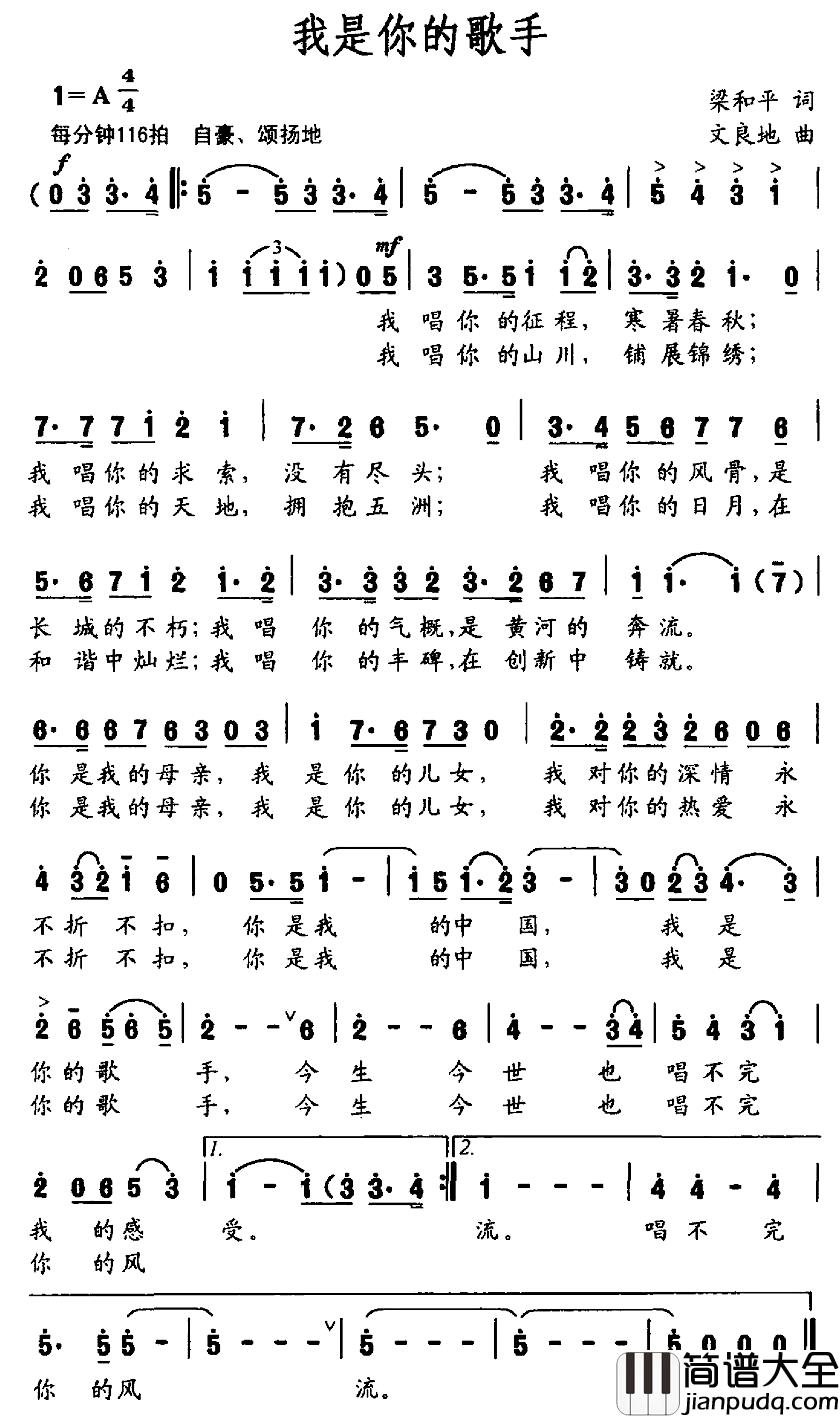 我是你的歌手
1=A 4/4
梁和平 词
每分钟116拍 自豪、颂扬地
文良地 曲
f
(0 3 3· 4 ‖: 5 - 5 3 3· 4 | 5 - 5 3 3· 4 | 5 4 3 1 |
3 mf
2 0 6 5 3 | 1 1 1 1 1) 0 5 | 3 5· 5 1 1 2 | 3· 3 2 1· 0 |
我 唱你 的征程, 寒 暑春秋;
我 唱你 的山川, 铺 展锦绣;
7· 7 7 1 2 1 | 7· 2 6 5· 0 | 3· 4 5 6 7 7 6 |
我 唱你的求 索, 没 有尽 头; 我 唱你的风骨,是
我 唱你的天 地, 拥 抱五 洲; 我 唱你的日月,在
5· 6 7 1 2 1· 2 | 3· 3 3 2 3· 2 6 7 | 1 1· 1 (7) |
长 城的不朽;我 唱 你 的气概,是 黄河的 奔流。
和 谐中灿烂;我 唱 你 的丰碑,在 创新中 铸就。
6· 6 6 7 6 3 0 3 | 1 7· 6 7 3 0 | 2· 2 2 3 2 6 0 6 |
你 是我的母亲, 我 是你 的儿女, 我 对你的深情 永
你 是我的母亲, 我 是你 的儿女, 我 对你的热爱 永
4 3 2 1 6 | 0 5· 5 1 - | 1 5 1· 2 3 - | 3 0 2 3 4· 3 |
不折 不扣, 你是我 的中 国, 我 是
不折 不扣, 你是我 的中 国, 我 是
2 6 5 6 5 | 2 - - 6 | 2 - - 6 | 4 - - 3 4 | 5 4 3 1 |
你的歌 手, 今 生 今 世 也 唱不完
你的歌 手, 今 生 今 世 也 唱不完
1. 2.
2 0 6 5 3 | 1 - 1 (3 3· 4 :‖ 1 - - - | 4 4 - 4 |
我 的感 受。 流。 唱不 完
你 的风
5· 5 5 - | 5 - - - | 5 - - - | 5 - - - | 5 0 0 0 ‖
你 的风 流。
简谱大全
jianpudq.com